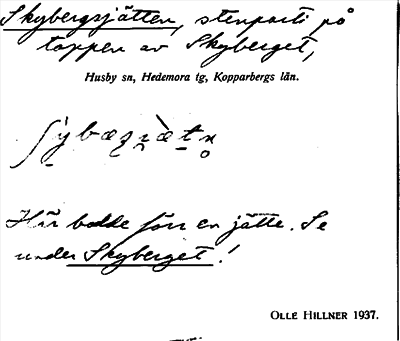 Skybergsjätten, stenparti på
toppen av Skyberget,
Husby sn, Hedemora tg, Kopparbergs län.
Här bodde förr en jätte. Se
under Skyberget!
OLLE HILLNER 1937.